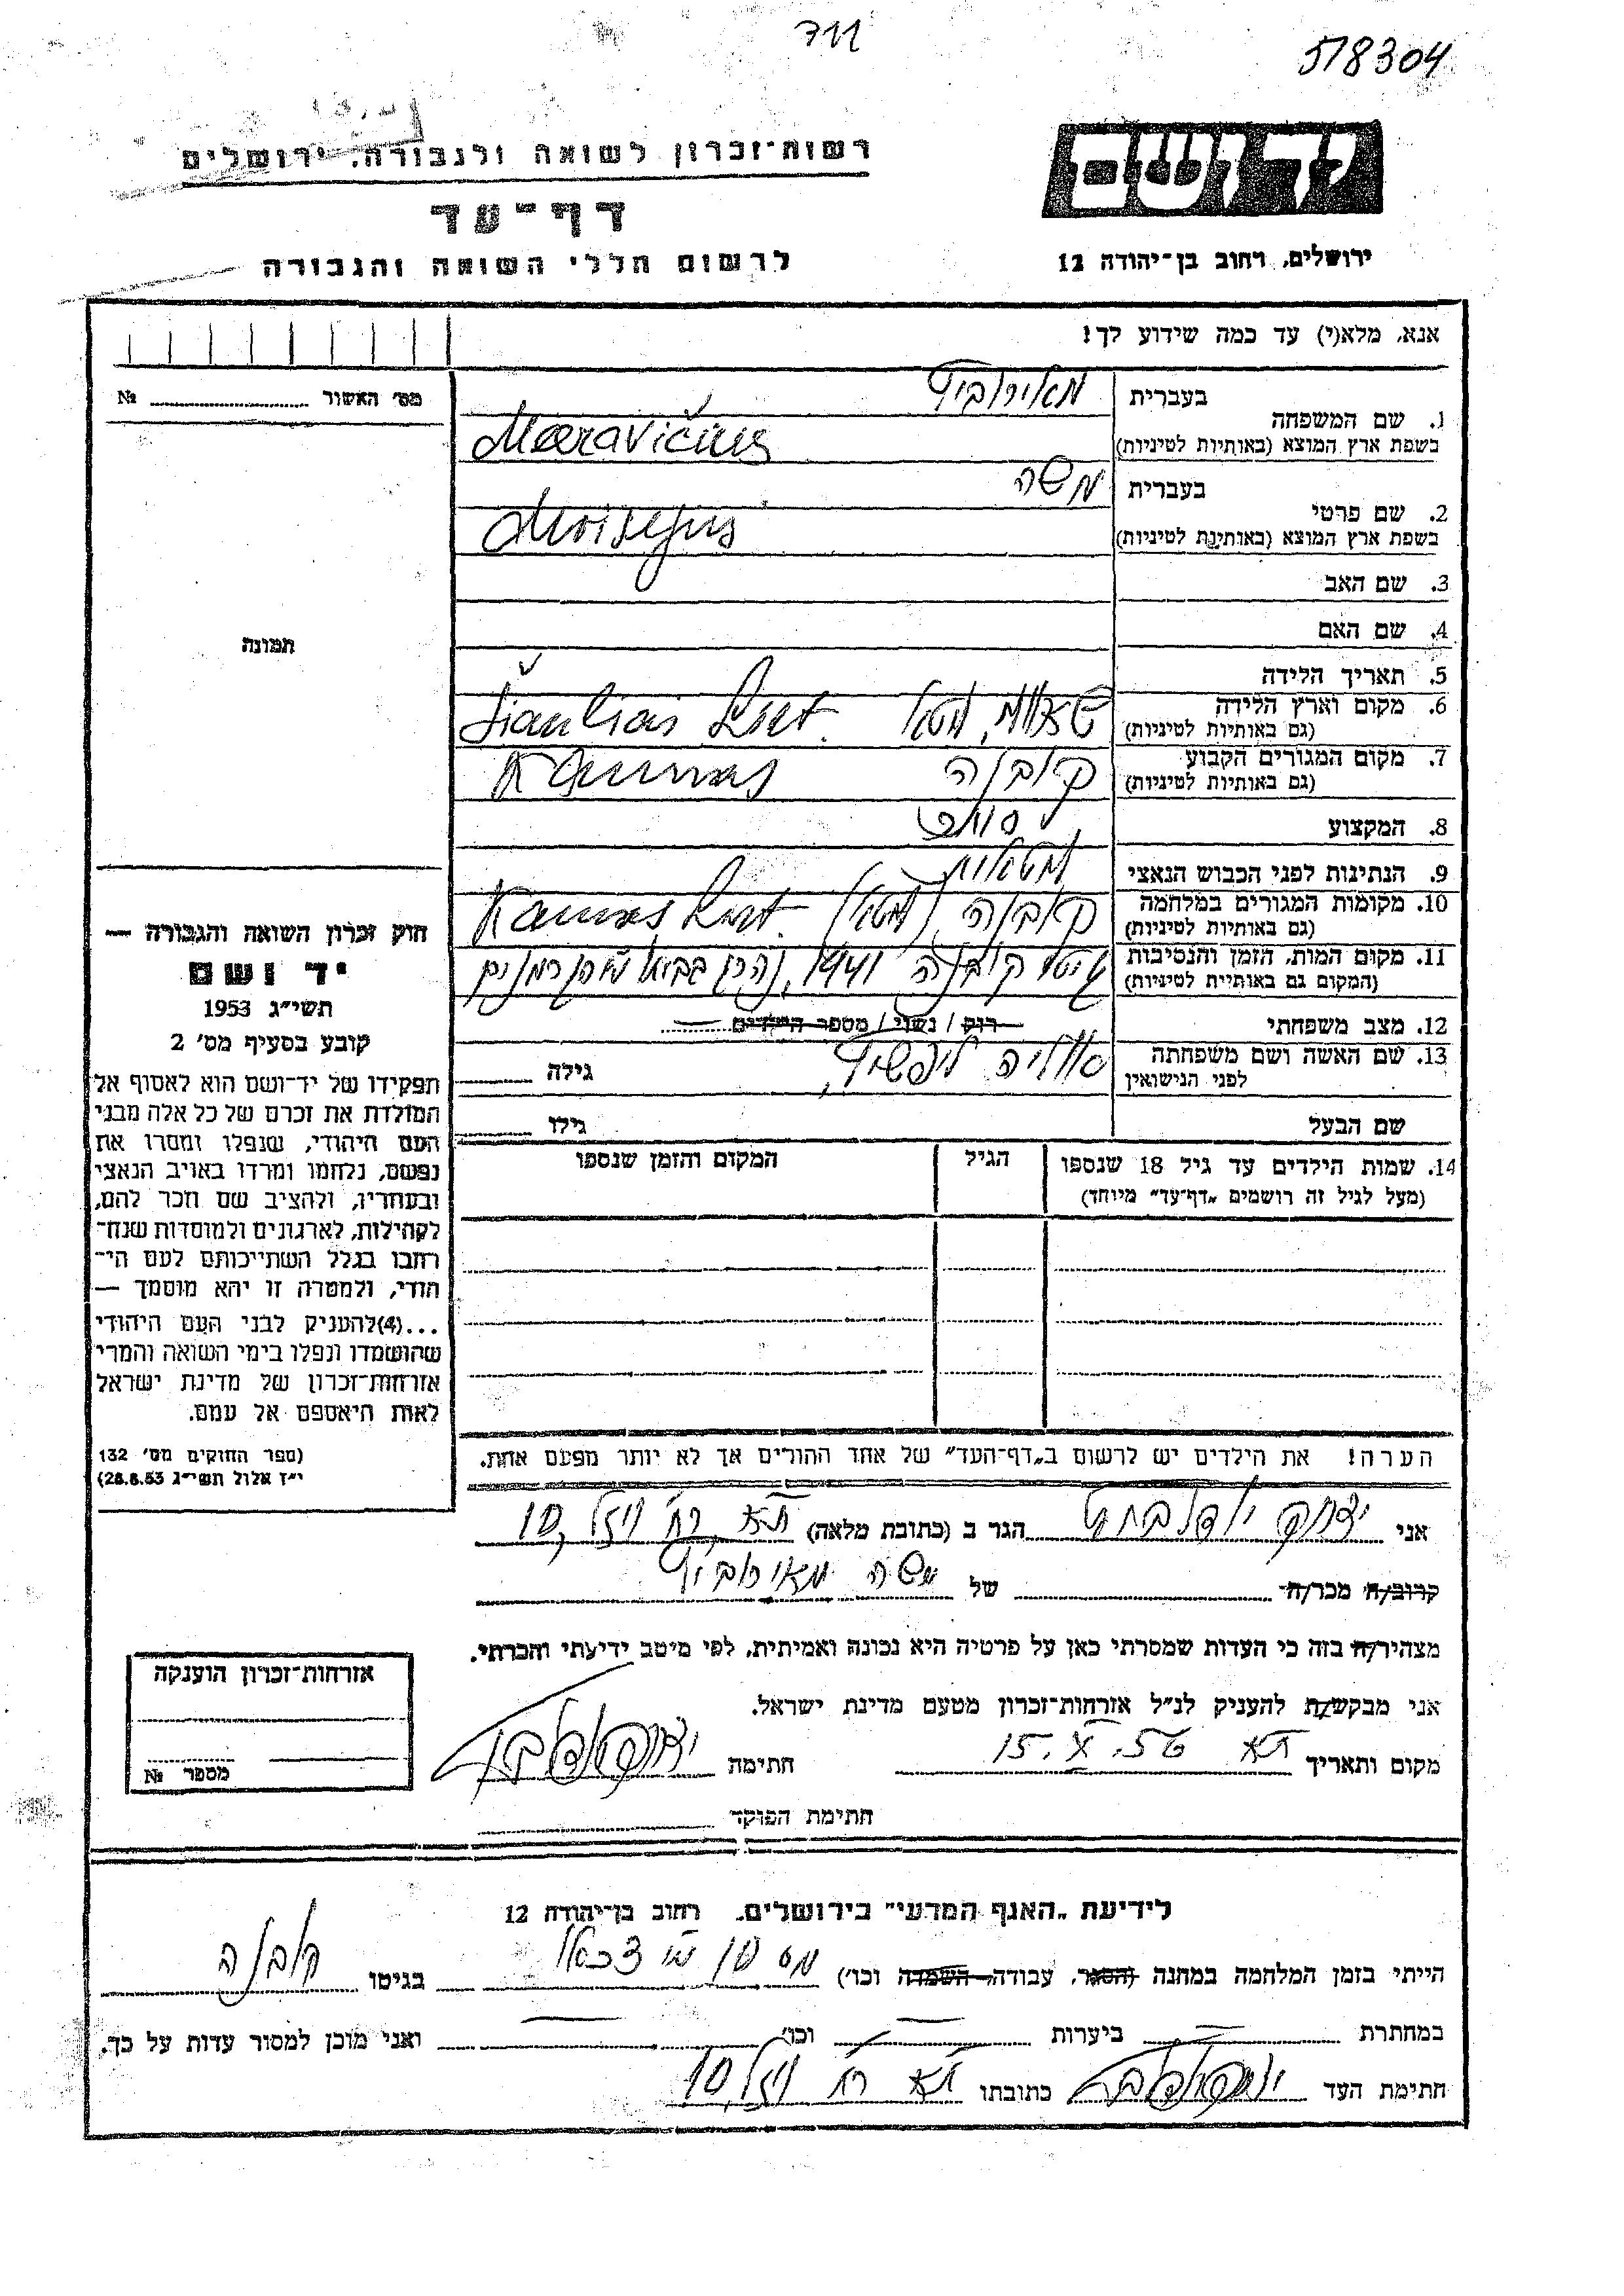 711
578304
רשות־זכרון לשואה ולגבורה, ירושלים
דף־עד
לרשום חללי השואה והגבורה
יד ושם
ירושלים, רחוב בן־יהודה 12
אנא, מלא(י) עד כמה שידוע לך!
מס' האשור №
תמונה
1. שם המשפחה
בעברית מאירוביץ
בשפת ארץ המוצא (באותיות לטיניות)
2. שם פרטי
בעברית משה
בשפת ארץ המוצא (באותיות לטיניות) Moisejus
3. שם האב
4. שם האם
5. תאריך הלידה
6. מקום וארץ הלידה
(גם באותיות לטיניות) Šiauliai
7. מקום המגורים הקבוע קובנה Kaunas
(גם באותיות לטיניות)
8. המקצוע
9. הנתינות לפני הכבוש הנאצי ליטאית
10. מקומות המגורים במלחמה קובנה Kaunas
(גם באותיות לטיניות)
11. מקום המות, הזמן והנסיבות גיטו קובנה 1941,
(המקום גם באותיות לטיניות)
12. מצב משפחתי רוק / נשוי / מספר הילדים
13. שם האשה ושם משפחתה
לפני הנישואין גילה
שם הבעל גילו
14. שמות הילדים עד גיל 18 שנספו הגיל המקום והזמן שנספו
(מעל לגיל זה רושמים „דף־עד” מיוחד)
הערה! את הילדים יש לרשום ב„דף־העד” של אחד ההורים אך לא יותר מפעם אחת.
חוק זכרון השואה והגבורה —
יד ושם
תשי״ג 1953
קובע בסעיף מס' 2
תפקידו של יד־ושם הוא לאסוף אל
המולדת את זכרם של כל אלה מבני
העם היהודי, שנפלו ומסרו את
נפשם, נלחמו ומרדו באויב הנאצי
ובעוזריו, ולהציב שם וזכר להם,
לקהילות, לארגונים ולמוסדות שנח־
רבו בגלל השתייכותם לעם הי־
הודי, ולמטרה זו יהא מוסמך —
...(4)להעניק לבני העם היהודי
שהושמדו ונפלו בימי השואה והמרי
אזרחות־זכרון של מדינת ישראל
לאות היאספם אל עמם.
(ספר החוקים מס' 132
י״ז אלול תשי״ג 28.8.53)
אני יצחק הגר ב (כתובת מלאה) תא
קרוב/ה מכר/ה של משה מאירוביץ
מצהיר/ה בזה כי העדות שמסרתי כאן על פרטיה היא נכונה ואמיתית, לפי מיטב ידיעתי והכרתי.
אני מבקש/ת להעניק לנ״ל אזרחות־זכרון מטעם מדינת ישראל.
מקום ותאריך תא 15.X.56 חתימה
חתימת הפוקד
אזרחות־זכרון הוענקה
מספר №
לידיעת „האגף המדעי” בירושלים. רחוב בן־יהודה 12
הייתי בזמן המלחמה במחנה (הסגר, עבודה, השמדה וכו') בגיטו קובנה
במחתרת ביערות וכו' ואני מוכן למסור עדות על כך.
חתימת העד כתובתו תא